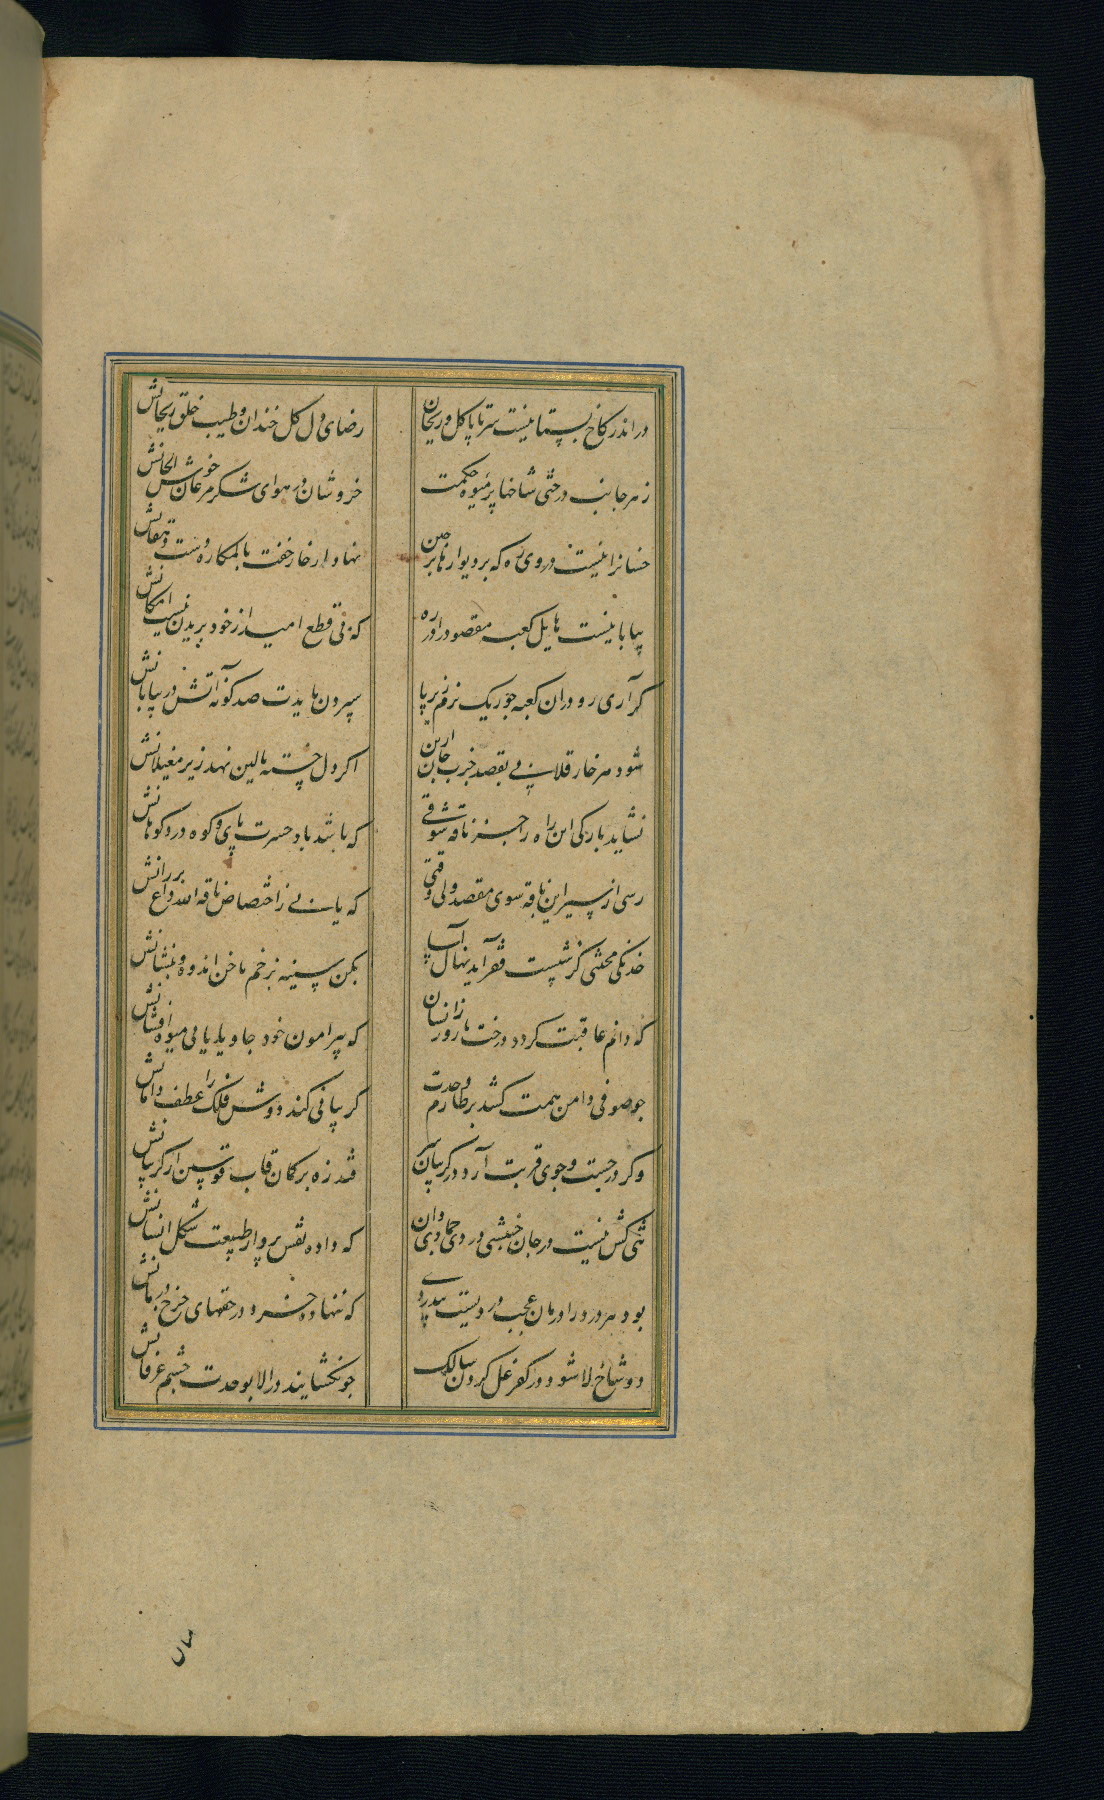 در اندر کاخ بستانیست سر تا پا گل و ریحان
رضای دل گل خندان و طیب خلق ریحانش
ز هر جانب درختی شاخها پر میوه حکمت
خروشان در هوای شکر مرغان خوش الحانش
خسانرا نیست در وی ره که بر دیوارها بر چین
نهاد از خار خفت بالمکاره دست دهقانش
بیابانیست هایل کعبه مقصود را در ره
که نی قطع امید از خود بریدن نیست امکانش
گر آری رو در آن کعبه چو ریک نرم زیر پا
سپردن بایدت صد گونه آتش در بیابانش
شود هر خار قلاب پی بقصد جرب جان
اگر دل خسته بالین نهد زیر مغیلانش
نشاید بارکی این راه را جز ناقه شوقی
که باشد باد حسرت پای و کوه درد کوهانش
رسی از سیر این ناقه سوی مقصد ولی وقتی
که یابی ز اختصاص ناقة الله داغ بر رانش
خدنگی محشی کز شست فقر آید نهال آسا
بکن سینه بزخم ناخن اندوه و بنشانش
که دانم عاقبت گردد درخت بارور زانسان
که پیرامون خود جاوید یابی میوه افشانش
چو صوفی دامن همت کشد بر طارم وحدت
گریبانی کند دوش فلک را عطف دامانش
وگر در جست و جوی قربت آرد در گریبان سر
فتد زه بر کمان قاب قوسین از گریبانش
تنی کش نیست در جان جنبشی در وی جمادی دان
که داده نقش پرداز طبیعت شکل انسانش
بود هر درد را درمان عجب دردیست بیدردی
که ننهادند در حقهای چرخ درمانش
دو شاخ لا شود در کفر غل گردن سالک
چو نگشایند در الا بوحدت چشم عرفانش